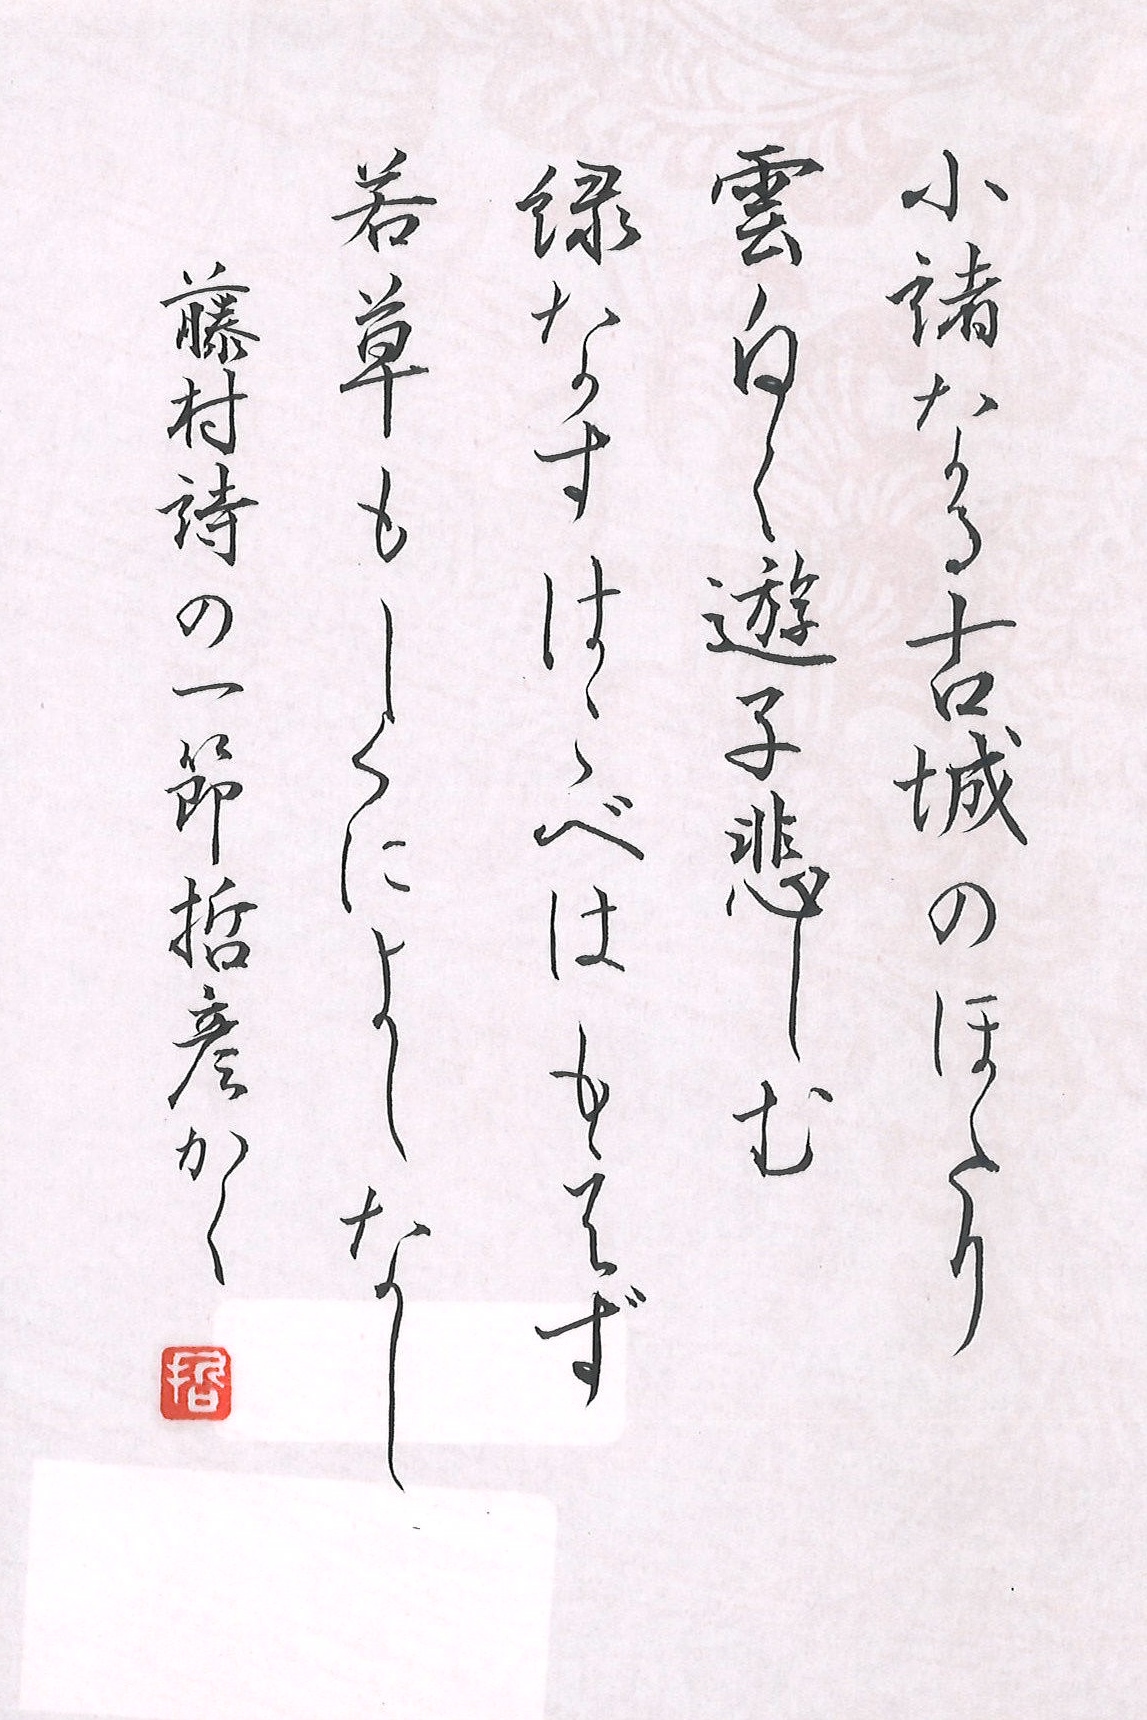 小諸なる古城のほとり
雲白く遊子悲しむ
緑なすはこべはもえず
若草もしくによしなし
藤村詩の一節哲彦かく
哲